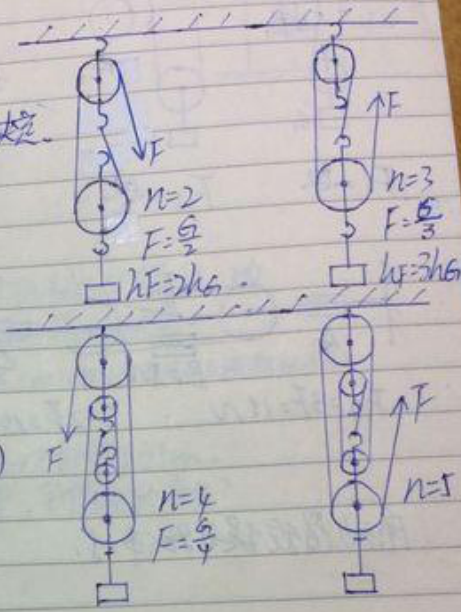 F
n=2
F=G/2
hF=2hG.
F
n=3
F=G/3
hF=3hG
F
n=4
F=G/4
F
n=5